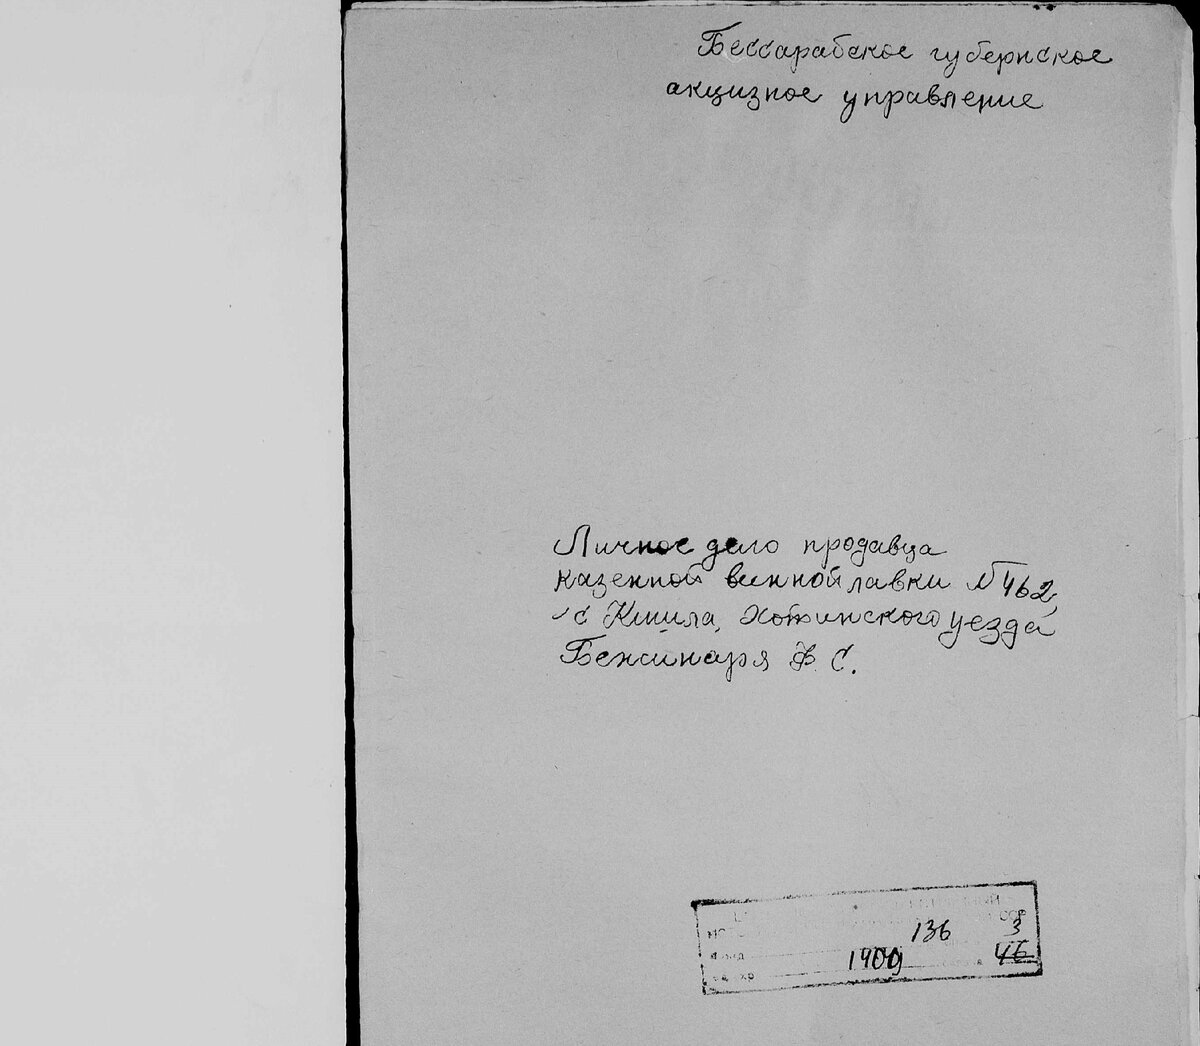 Бессарабское губернское
акцизное управление
Личное дело продавца
казенной винной лавки № 462,
с Хотинского уезда
Бенсинаря Ф. С.
136 3
1409 46